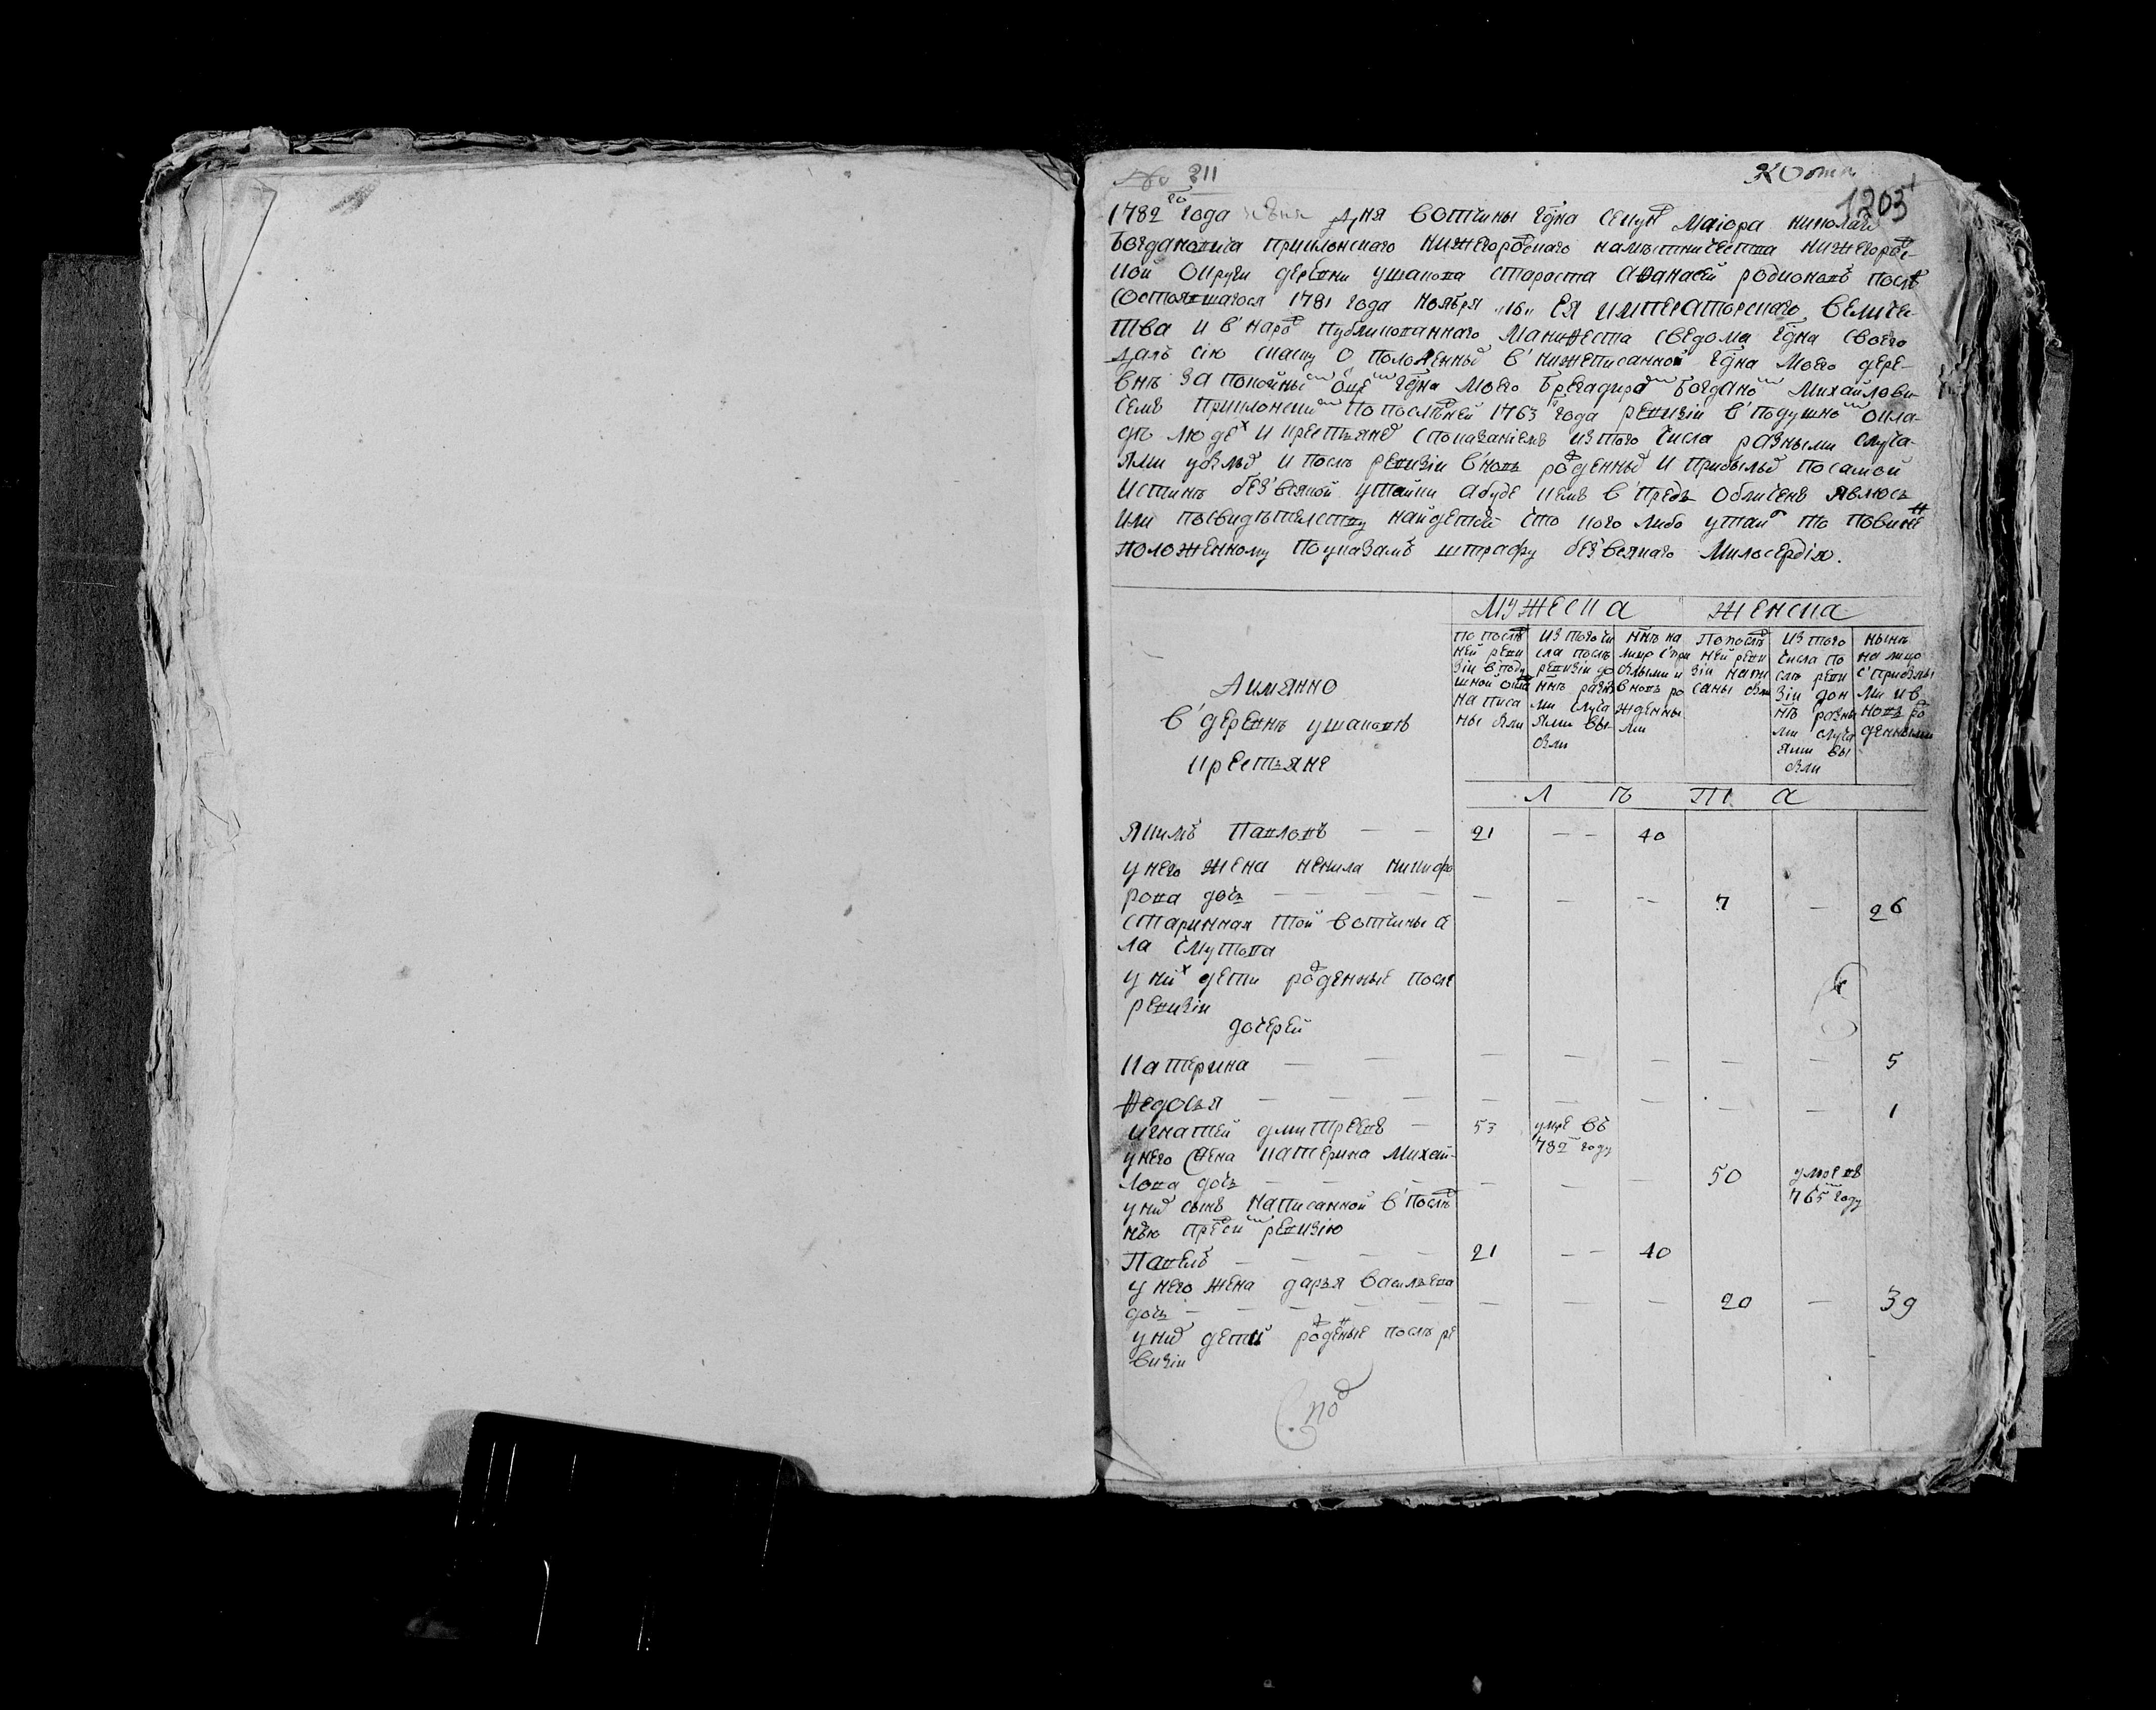 № 311
1203
1782го года дня вотчины гдна секунд маиора николая
богдановича приклонскаго нижегородскаго намѣстничества нижегородс-
кой округи деревни ушакова староста афанасей родионовъ после
состоявшагося 1781 года ноября „16„ ея императорскаго величес
тва и в'народ публикованнаго манифеста сведома гдна своего
далъ сию скаску о положенных в'нижеписанной гдна моего дере-
внѣ за покойным оцем гдна моего брегадиром богданом михайлови
чемъ приклонским по последней 1763 года ревизiи в'подушном окла-
дѣ людех и крестьянех спожазанiемъ изтого числа разными случа-
ями убылых и послѣ ревизiи вновь рожденных и прибылых посамой
истиннѣ без'всякой утайки абуде кемъ в'предь обличенъ явлюсь
или посвидѣтелству найдетца что кого либо утаил то повинен
положенному поуказамъ штрафу без'всякаго милосердiя.
мужеска женска
Аимянно
в'деревнѣ ушаковѣ
крестьяне
по послѣд
ней реви
зiи в'поду
шной окла
написа
ны были
из того чи
сла послѣ
ревизiи до
ннѣ разны
ми случа
ями вы
были
ннѣ на
лицо с'при
былыми и
вновь ро
жденны
ми
по послѣд
ней реви
зiи напи
саны были
из того
числа по
слѣ реви
зiи до н
нѣ разны
ми случа
ями вы
были
нынѣ
на лицо
с'прибылы
ми и в
новь рож
денными
л ѣ т а
якимъ павловъ — — 21 — — 40
у него жена ненила никифо
рова дочь — — — 7 — 26
старинная той вотчины се
ла смутова
у них дети рожденные после
ревизiи
дочерей
катерина — — — — — — — 5
федосья — — — — — — — — 1
игнатей дмитреевъ — 53 умре въ
782м году
унего жена катерина михай-
лова дочь — — — 50 умре въ
765м году
у них сынъ написанной в'послѣд
нѣю пред сим ревизию
павелъ — — — — 21 — — 40
у него жена дарья васильева
дочь — — — — — — 20 — 39
у них дети рожденые послѣ ре
визiи